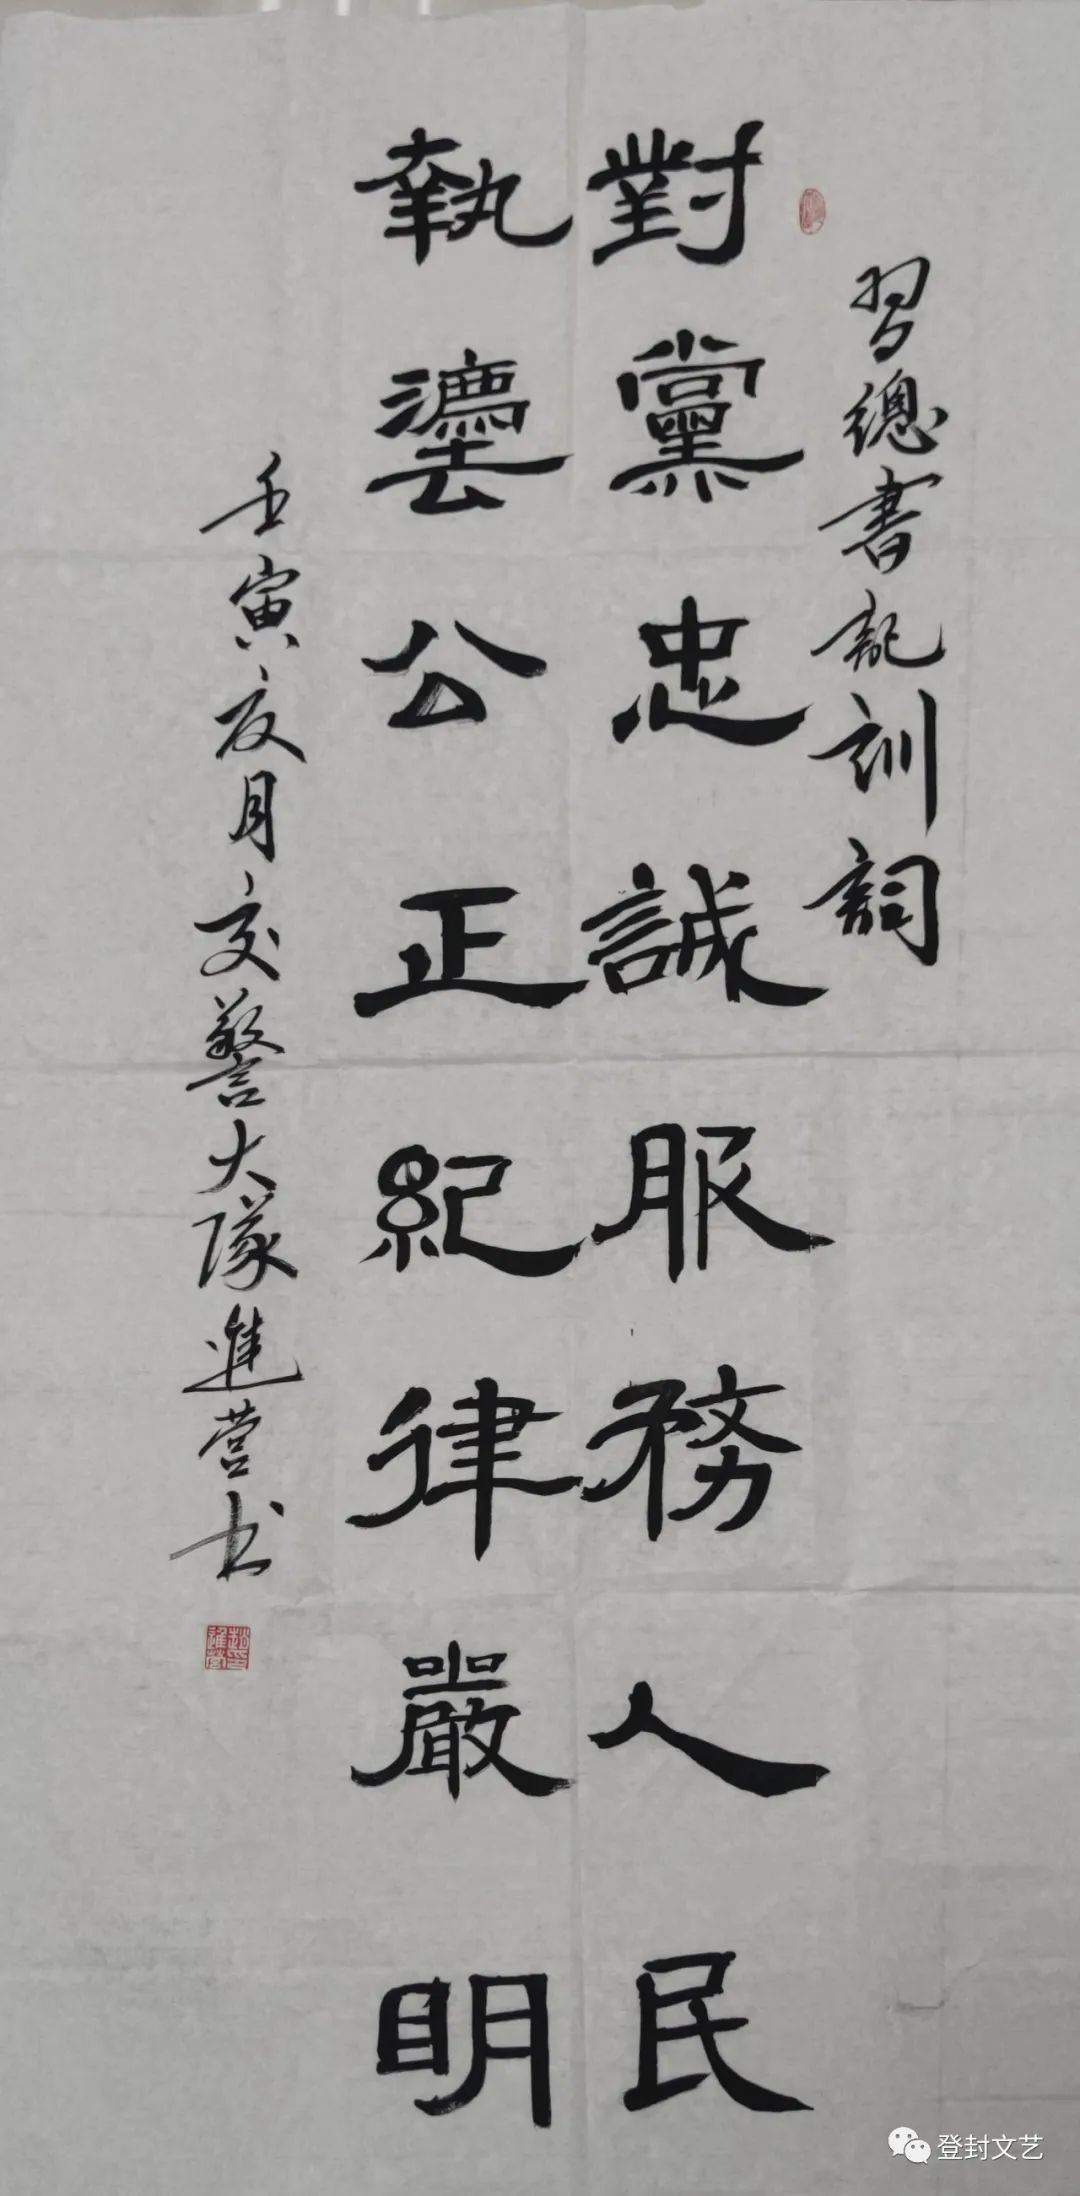 習總書記訓詞
對黨忠誠服務人民
執灋公正紀律嚴明
壬寅月交警大隊進营书
趙印進營
登封文艺